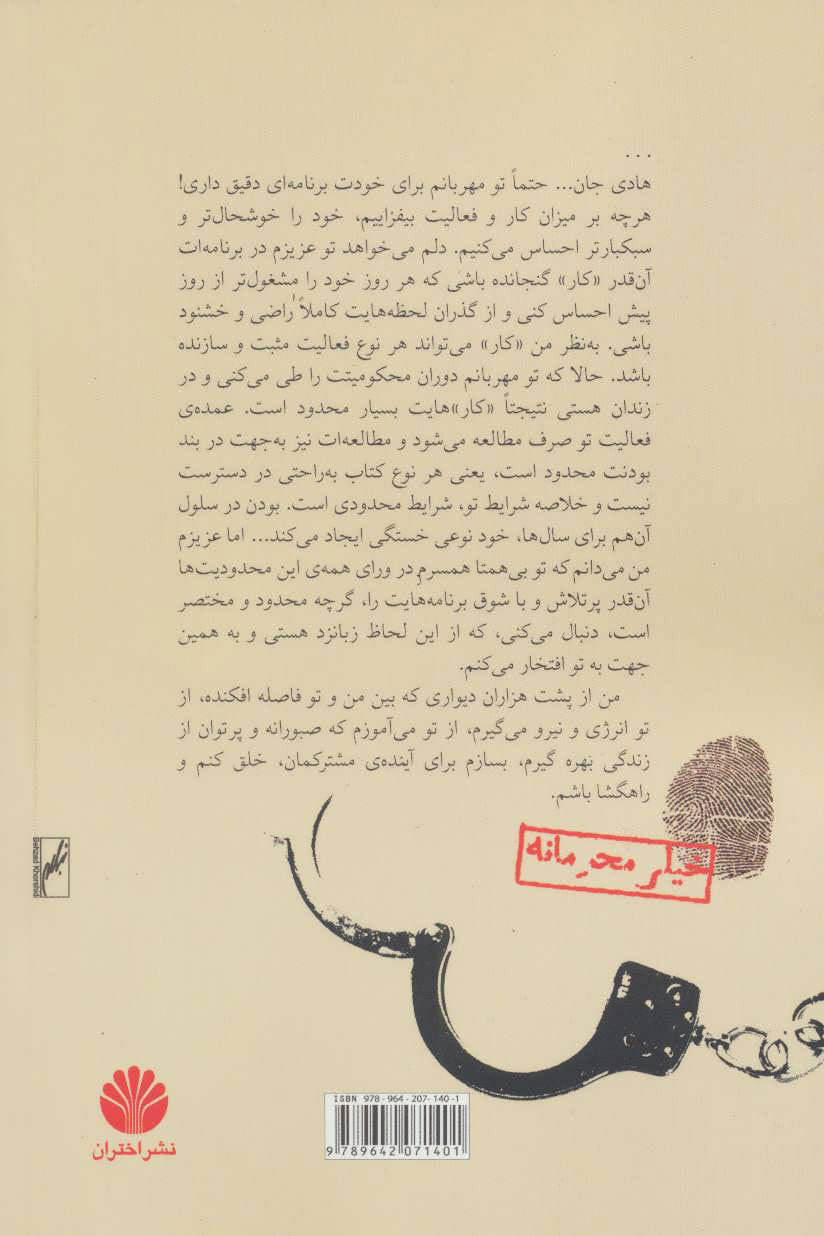 ...
هادی جان... حتماً تو مهربانم برای خودت برنامه‌ای دقیق داری!
هرچه بر میزان کار و فعالیت بیفزاییم، خود را خوشحال‌تر و
سبکبارتر احساس می‌کنیم. دلم می‌خواهد تو عزیزم در برنامه‌ات
آن‌قدر «کار» گنجانده باشی که هر روز خود را مشغول‌تر از روز
پیش احساس کنی و از گذران لحظه‌هایت کاملاً راضی و خشنود
باشی. به‌نظر من «کار» می‌تواند هر نوع فعالیت مثبت و سازنده
باشد. حالا که تو مهربانم دوران محکومیتت را طی می‌کنی و در
زندان هستی نتیجتاً «کار»هایت بسیار محدود است. عمده‌ی
فعالیت تو صرف مطالعه می‌شود و مطالعه‌ات نیز به‌جهت در بند
بودنت محدود است، یعنی هر نوع کتاب به‌راحتی در دسترست
نیست و خلاصه شرایط تو، شرایط محدودی است. بودن در سلول
آن‌هم برای سال‌ها، خود نوعی خستگی ایجاد می‌کند... اما عزیزم
من می‌دانم که تو بی‌همتا همسرم در ورای همه‌ی این محدودیت‌ها
آن‌قدر پرتلاش و با شوق برنامه‌هایت را، گرچه محدود و مختصر
است، دنبال می‌کنی، که از این لحاظ زبانزد هستی و به همین
جهت به تو افتخار می‌کنم.
من از پشت هزاران دیواری که بین من و تو فاصله افکنده، از
تو انرژی و نیرو می‌گیرم، از تو می‌آموزم که صبورانه و پرتوان از
زندگی بهره گیرم، بسازم برای آینده‌ی مشترکمان، خلق کنم و
راهگشا باشم.
خیلی محرمانه
Behzad Khorshidi
ISBN 978-964-207-140-1
9 789642 071401
نشر اختران